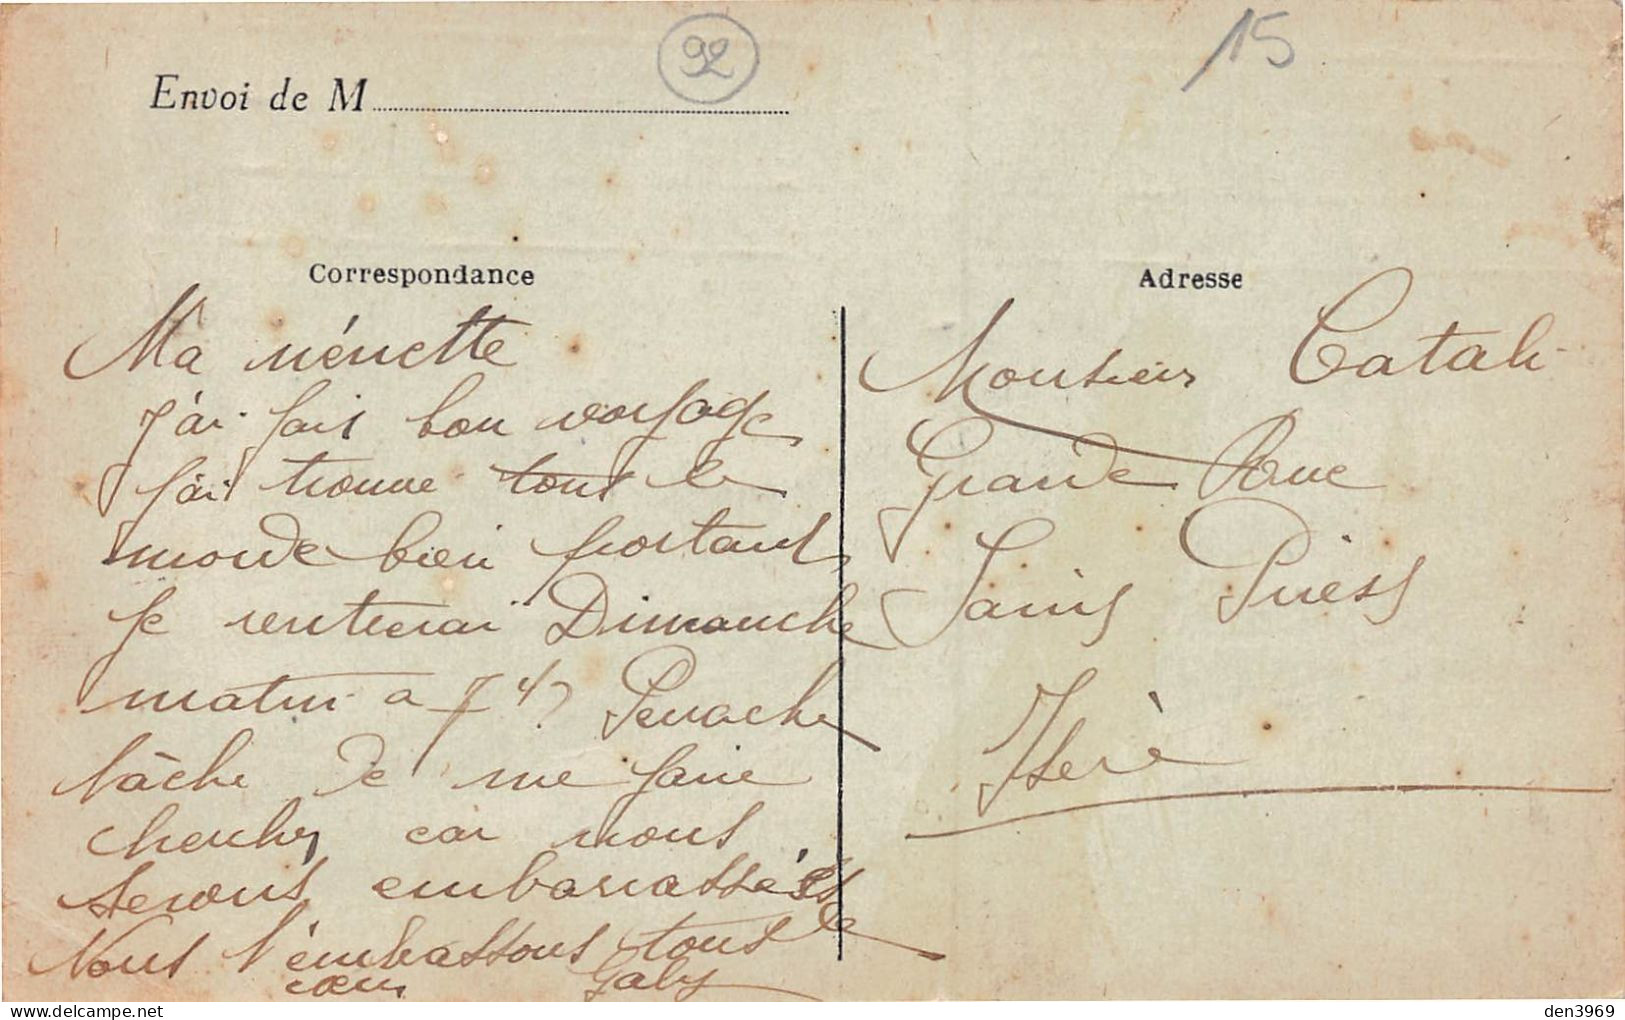 92
15
Envoi de M
Correspondance
Ma nénette
J'ai fais bon voyage
J'ai trouve tous le
monde bien portant
Je rentrerai Dimanche
matin a 7 h Perrache
tâche de me faire
chercher car nous
serons embarassées
Nous t'embrassons tous
coeur Gaby
Adresse
Monsieur Catali
Grande Rue
Saint Priest
Isère
den3969